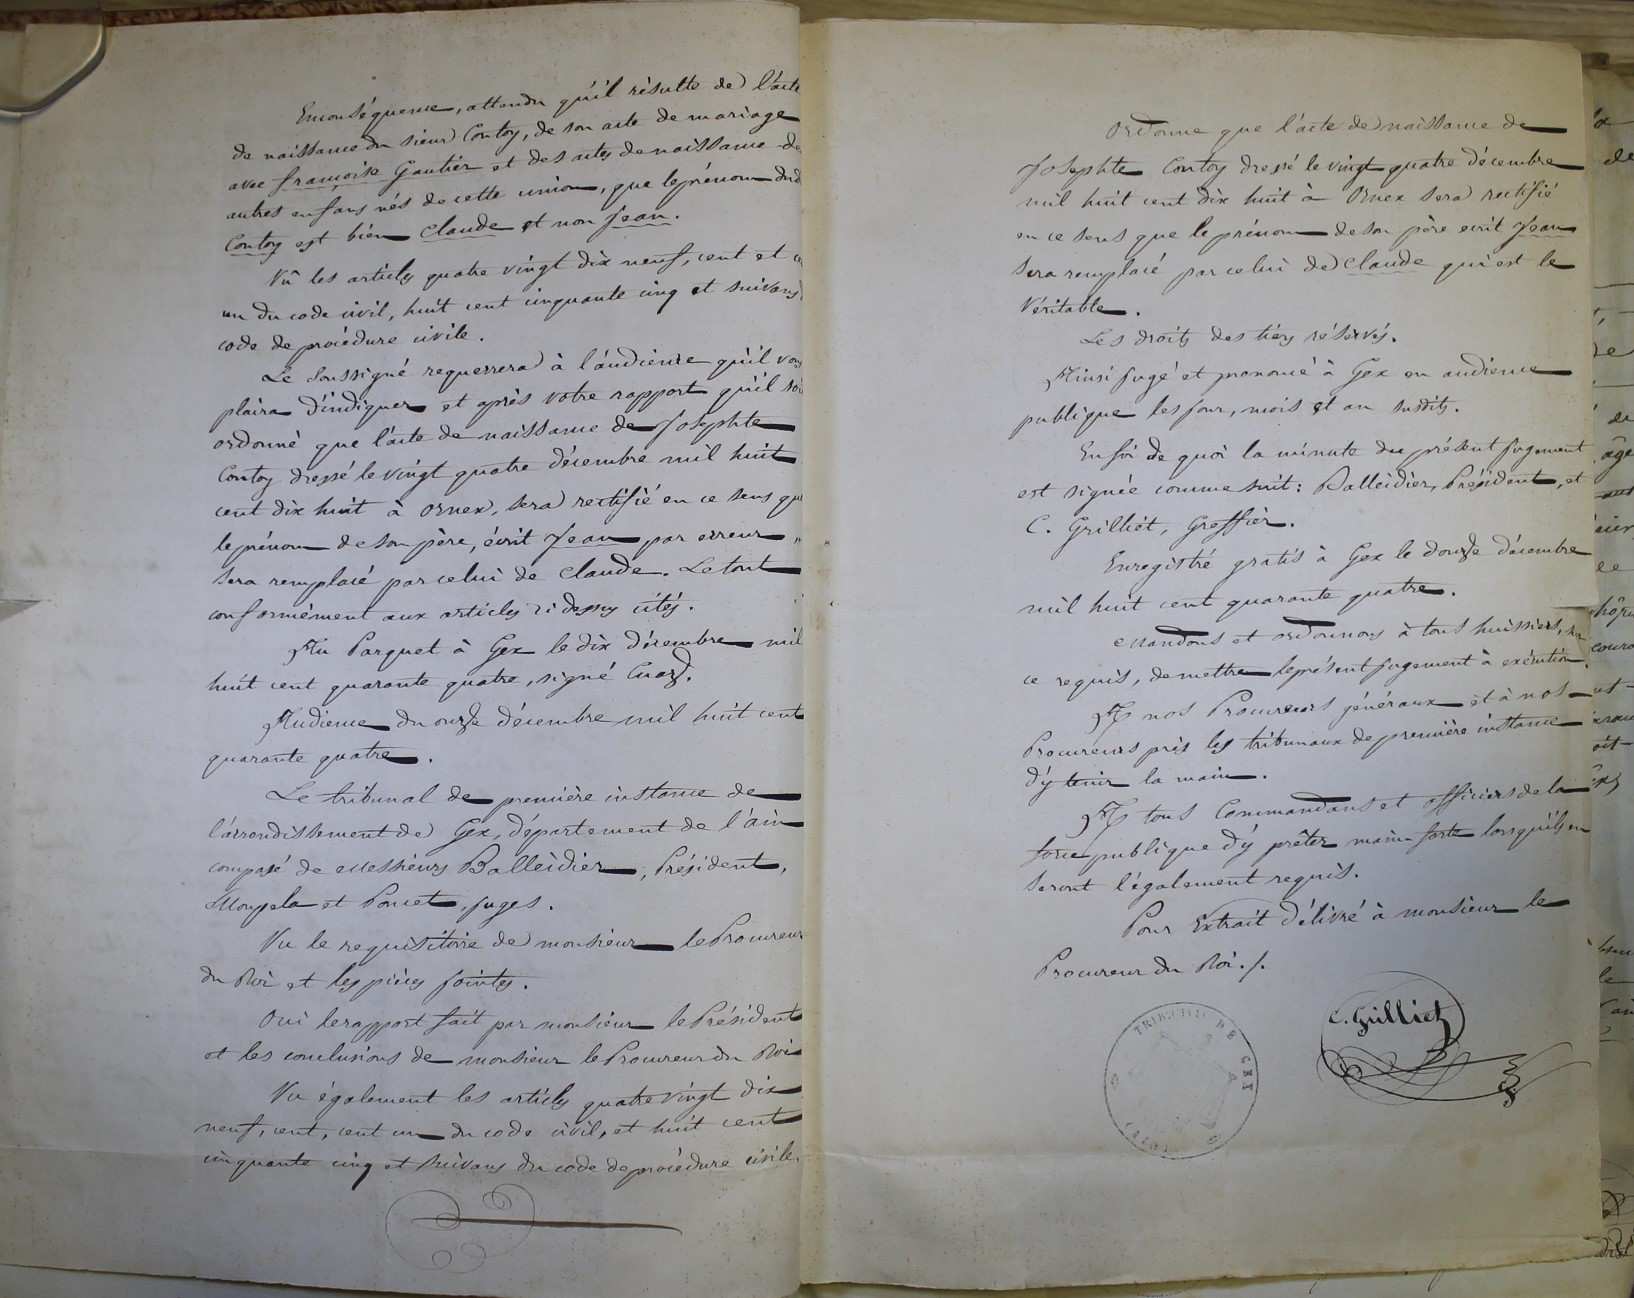 Enconséquence, attendu qu'il résulte de l'acte
de naissance du sieur Contoz, de son acte de mariage
avec françoise Gautier et des actes de naissance de
autres enfans nés de cette union, que le prénom dud
Contoz est bien Claude et non Jean.
Vû les articles quatre vingt dix neuf, cent et ce
un du code civil, huit cent cinquante cinq et suivans
code de procédure civile.
Le Soussigné requerrera à l'audience qu'il vous
plaira d'indiquer et après votre rapport qu'il soi
ordonné que l'acte de naissance de Josephte
Contoz dressé le vingt quatre décembre mil huit
cent dix huit à Ornex, sera rectifié en ce sens que
le prénom de son père, écrit Jean par erreur,
sera remplacé par celui de Claude. Le tout
conformément aux articles ci dessus cités.
Au Parquet à Gex le dix décembre mil
huit cent quarante quatre, signé Cuaz.
Audience du onze décembre mil huit cent
quarante quatre.
Le tribunal de première instance de
l'arrondissement de Gex, département de l'ain
composé de Messieurs Balleidier, Président,
Monpela et Poncet, juges.
Vu le requisitoire de monsieur le Procureur
du Roi et les pièces jointes.
Oui le rapport fait par monsieur le Président
et les conclusions de monsieur le Procureur du Roi
Vu également les articles quatre vingt dix
neuf, cent, cent un du code civil, et huit cent
cinquante cinq et suivans du code de procédure civile.
Ordonne que l'acte de naissance de
Josephte Contoz dressé le vingt quatre décembre
mil huit cent dix huit à Ornex sera rectifié
en ce sens que le prénom de son père écrit Jean
sera remplacé par celui de Claude qui est le
Véritable.
Les droits des tiers réservés.
Ainsi jugé et prononcé à Gex en audience
publique les jour, mois et an susdits.
En foi de quoi la minute du présent jugement
est signée comme suit: Balleidier, Président, et
C. Grilliet, Greffier.
Enregistré gratis à Gex le douze décembre
mil huit cent quarante quatre.
Mandons et ordonnons à tous huissiers, sur
ce requis, de mettre le présent jugement à exécution.
A nos Procureurs généraux et à nos
Procureurs près les tribunaux de première instance
d'y tenir la main.
A tous Commandans et officiers de la
force publique d'y prêter main forte lorsqu'ils en
seront légalement requis.
Pour Extrait délivré à monsieur le
Procureur du Roi./.
C. Grilliet
TRIBUNAL DE GEX